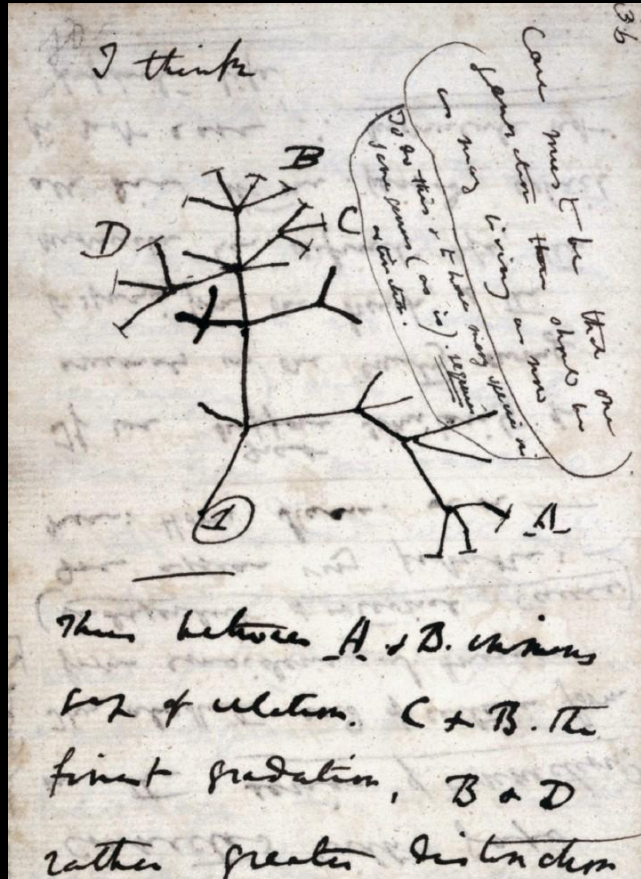 36
I think
Case must be that one
generation then should be
as many living as now
To do this & to have many species in
same genus (as is). requires
extinction.
B
C
D
A
1
Thus between A & B. immens
gap of relation. C & B. The
finest gradation, B & D
rather greater distinction